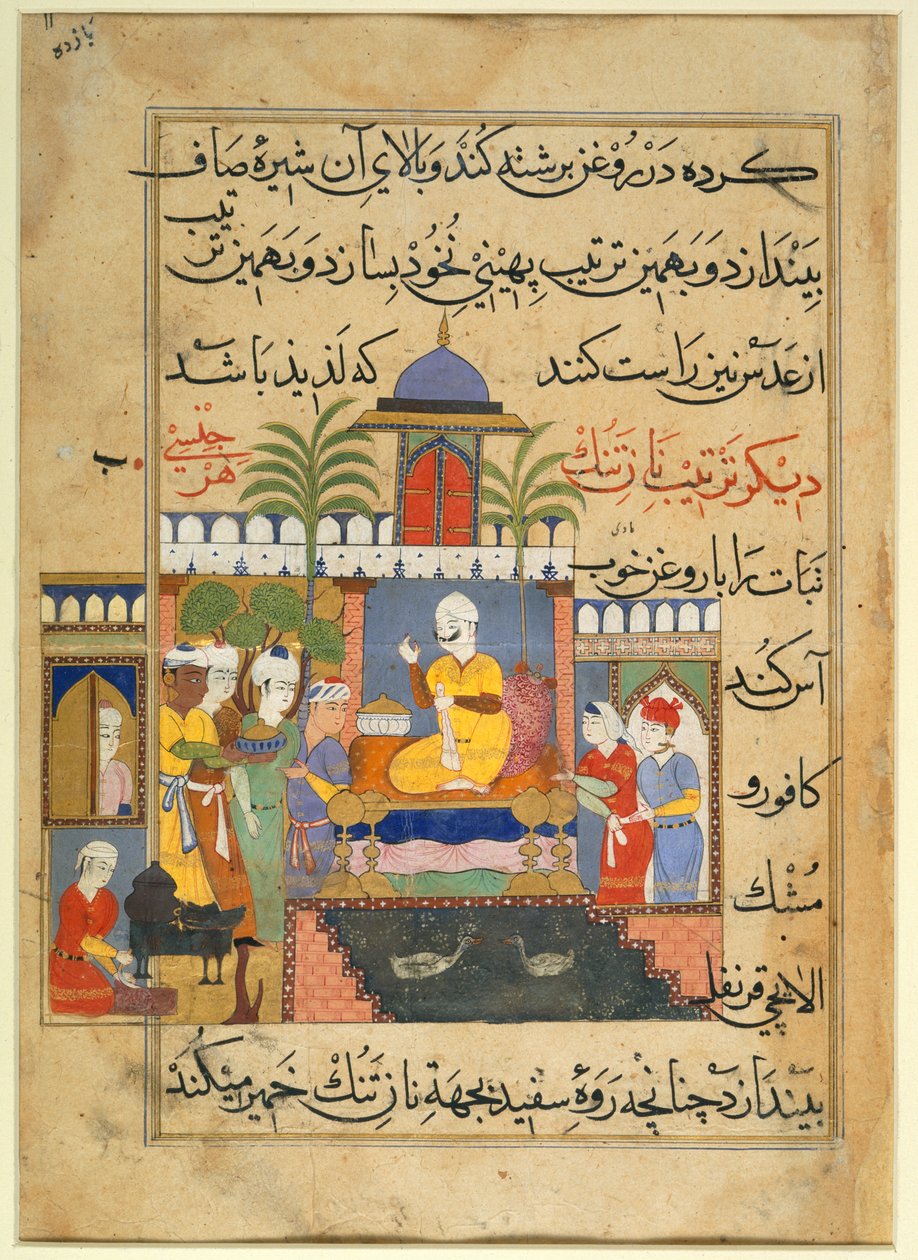 ۱۱
یازده
کرده در رُوْغن برشته کُنَدْ وَ بَالایِ آن شیرهٔ صَاف
بِیَنْدَازد وَ بَهَمِیْن ترتیب پِهِیْنیِ نُخُوْد بِسَازد وَ بهَمِین تر
تیب
از عَدَسْ نیز رَاست کنند که لَذیذ بَاشَد
دیگر تَرْتیْب نَانِ تَنُكْ
هَرْ جِنْسی
نبَات رَا بَا روغن خوب
آس کُند
کافور و
مُشْك
الایچی قرنفل
بیندازد چنانچه رَوَهٔ سفید بجهةِ نانِ تَنُكْ خمیر میکُنَدْ